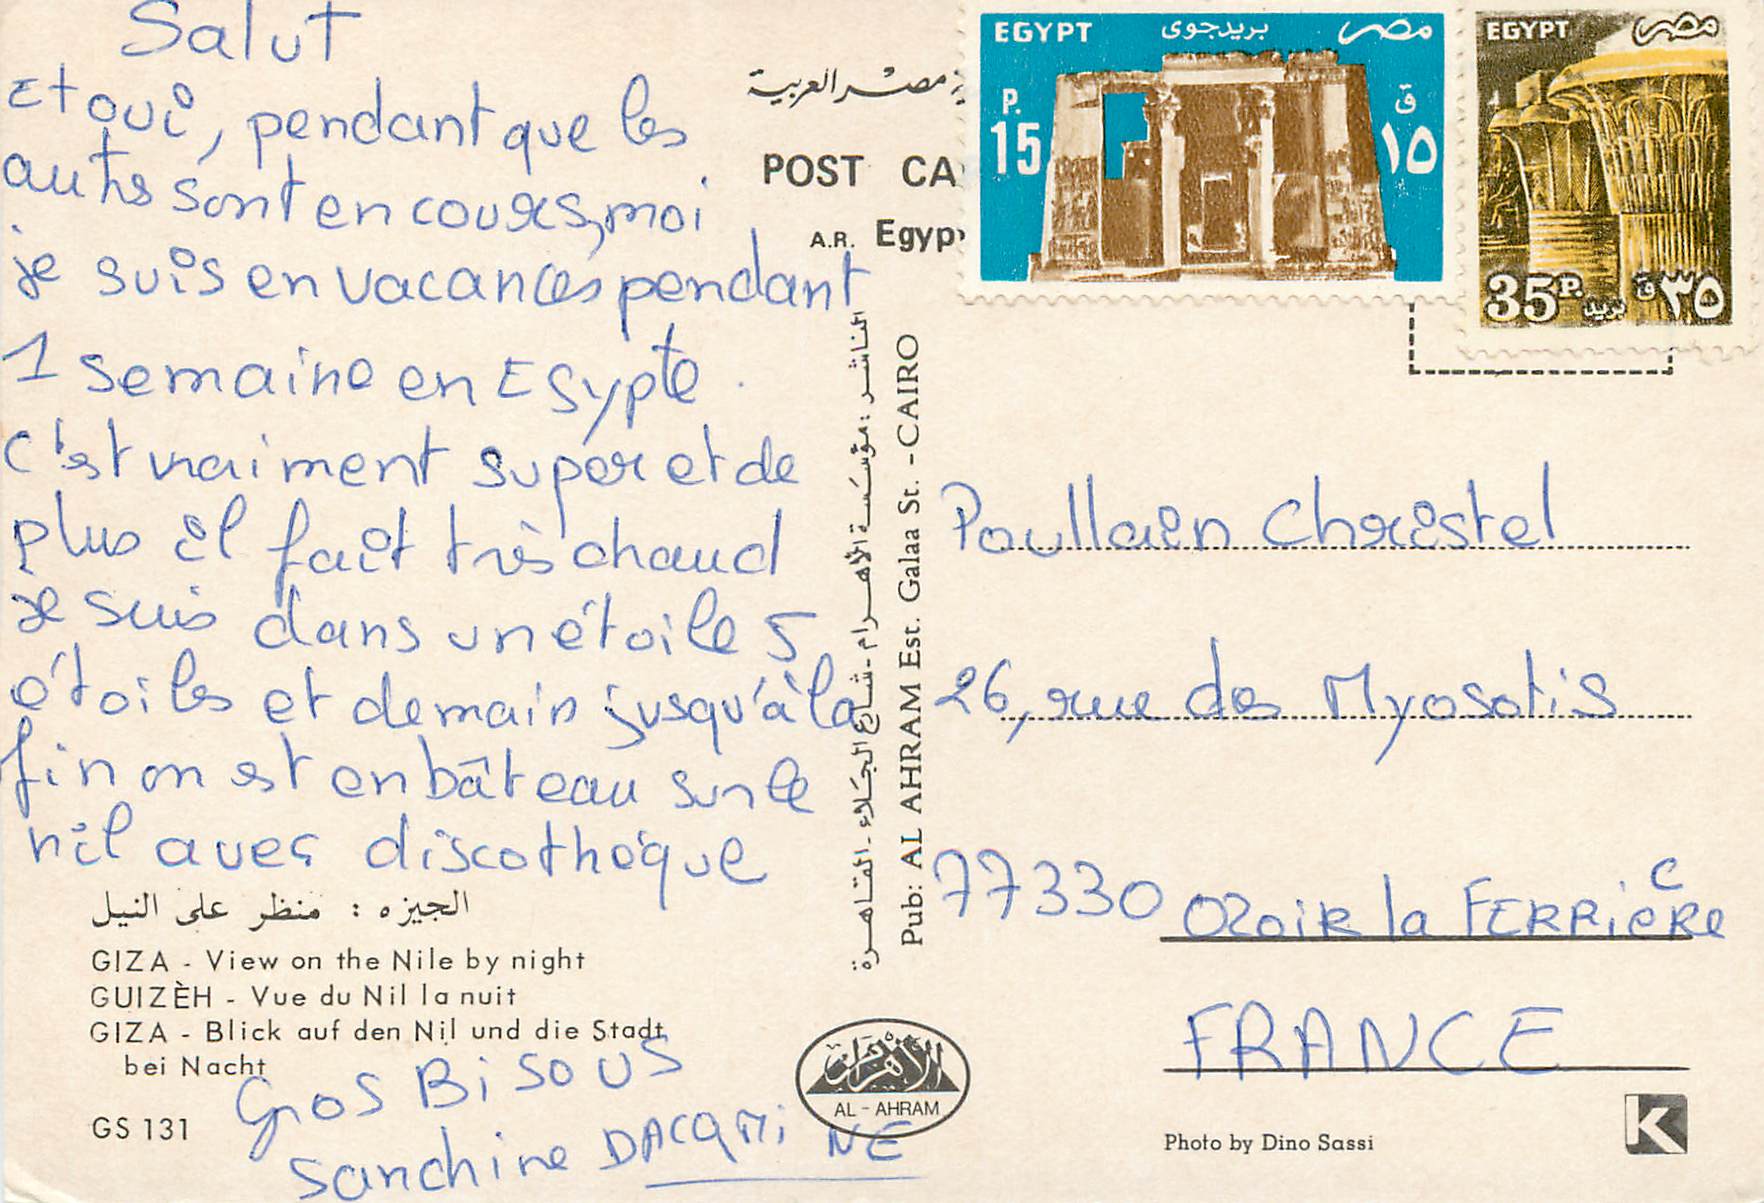 Salut
Et oui, pendant que les
autres sont en cours, moi
je suis en vacances pendant
1 semaine en Egypte.
C'est vraiment super et de
plus il fait très chaud
je suis dans un étoile 5
étoiles et demain jusqu'à la
fin on est en bâteau sur le
nil avec discothèque
الجيزه : منظر على النيل
GIZA - View on the Nile by night
GUIZÈH - Vue du Nil la nuit
GIZA - Blick auf den Nil und die Stadt
bei Nacht
GS 131
Gros Bisous
Sanchine
مصر العربية
POST CA
A.R. Egyp
الناشر : مؤسسة الأهرام - شارع الجلاء - القاهرة
Pub: AL AHRAM Est. Galaa St. - CAIRO
الأهرام
AL - AHRAM
EGYPT بريد جوى مصر
P. 15
ق ١٥
EGYPT مصر
35P. بريد ق ٣٥
Poullain Christel
26, rue des Myosotis
77330 Ozoir la FERRièRe
C
FRANCE
Photo by Dino Sassi
K